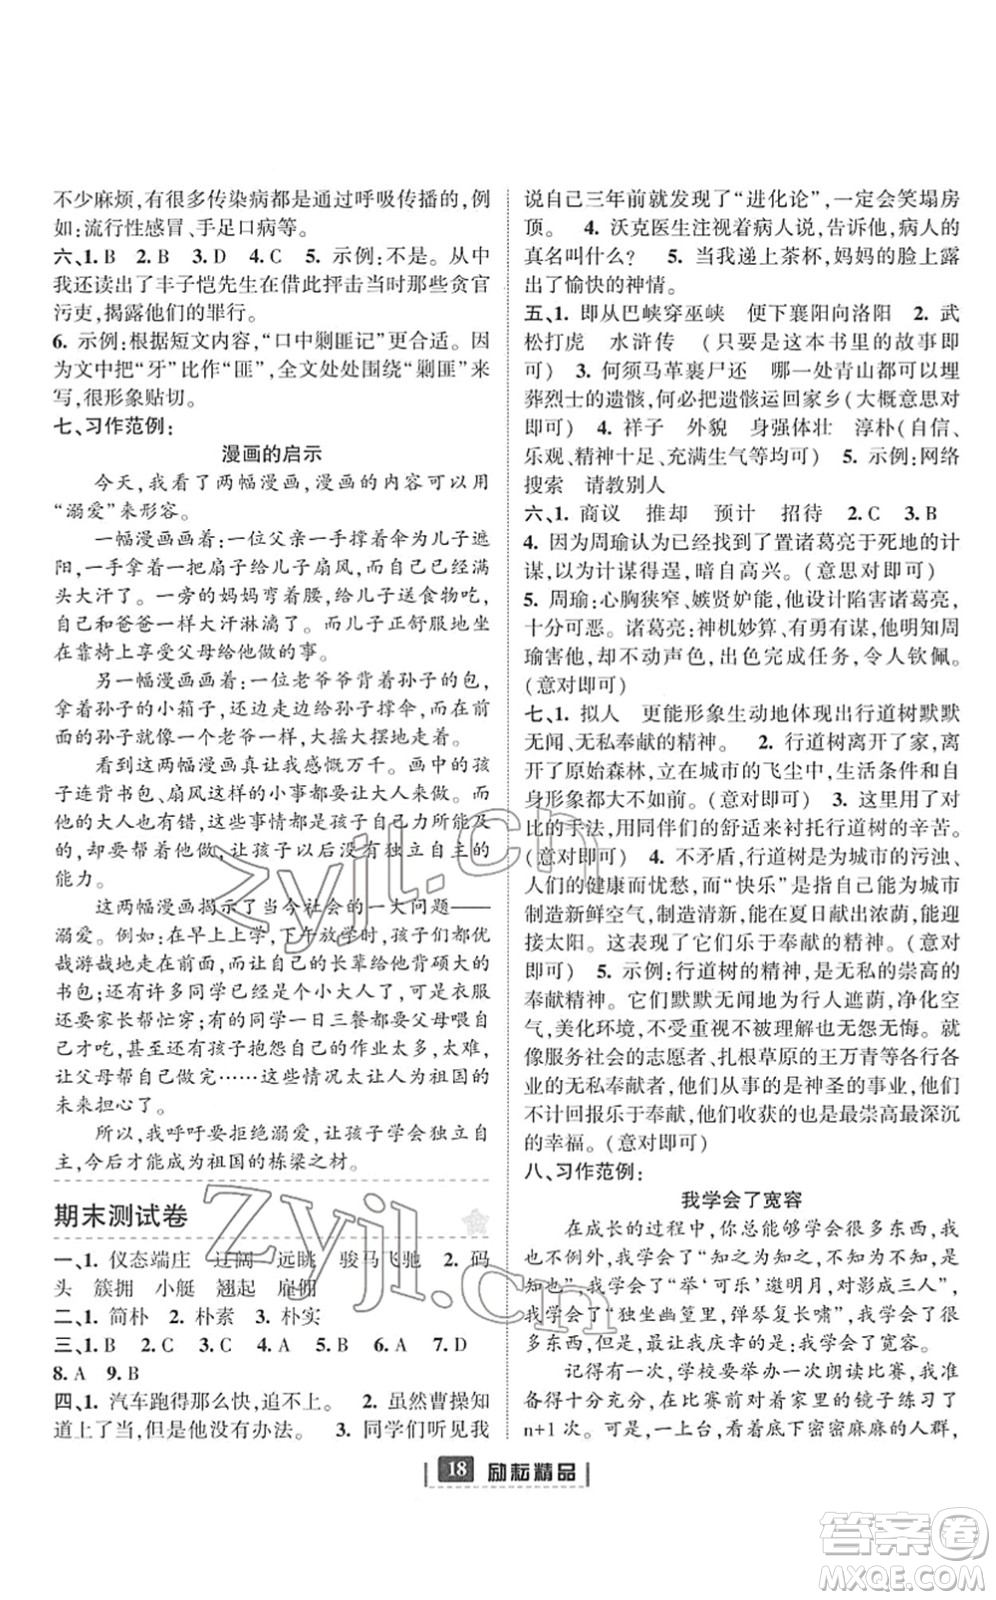 不少麻烦,有很多传染病都是通过呼吸传播的,例
如:流行性感冒、手足口病等。
六、1. B　2. B　3. D　4. C　5. 示例:不是。从中
我还读出了丰子恺先生在借此抨击那些贪官
污吏,揭露他们的罪行。
6. 示例:根据短文内容,“口中剿匪记”更合适。因
为文中把“牙”比作“匪”,全文处处围绕“剿匪”来
写,很形象贴切。
七、习作范例:
漫画的启示
今天,我看了两幅漫画,漫画的内容可以用
“溺爱”来形容。
一幅漫画画着:一位父亲一手撑着伞为儿子遮
阳,一手拿着一把扇子给儿子扇风,而他自己却已
满头大汗了。一旁的妈妈弯着腰,给儿子送食物吃,
也和爸爸一样大汗淋漓。而儿子正舒服地
在靠椅上享受父母给他做的事。
另一幅漫画画着:一位老爷爷背着孙子的包,
拿着孙子的小箱子,还边走边给孙子撑伞,而在前
面的孙子像个老爷一样,大摇大摆地走着。
看到这两幅漫画让我感慨万千。画中的孩
子连背书包、扇风这样的小事都要让大人来做。
他的大人也有错,这些事情都是孩子自己力所能及
的,大人却帮他做,让孩子以后没有独立自主的
能力。
这两幅漫画揭示了当今社会的一大问题——
溺爱。例如:在早上上学,下午放学时,孩子们优
哉游哉地走在前面,而他们的长辈给他们背硕大的
书包;还有许多同学已经是个小大人了,可衣服
还要家长帮忙穿;有的同学一日三餐都要父母喂
才肯吃;甚至还有孩子抱怨自己的作业太多,太难,
让父母帮自己做完……这些情况太让人为祖国的
未来担心了。
所以,我呼吁要拒绝溺爱,让孩子学会独立自
主,今后才能成为祖国的栋梁之材。
期末测试卷
一、1. 仪态端庄　辽阔　远眺　骏马飞驰　2. 码
头　簇拥　小艇　翘起　雇佣
二、1. 简朴　2. 朴素　3. 朴实
三、1. B　2. C　3. C　4. A　5. A　6. A　7. D
8. A　9. B
四、1. 汽车跑得那么快,追不上。　2. 虽然曹操知
道上了当,但也没有办法。　3. 同学们听见我
说自己三年前就发现了“进化论”,一定会笑塌房
顶。　4. 沃克医生注视着病人,告诉他,病人的
真名叫什么?　5. 当我递上茶杯,妈妈的脸上露
出了愉快的神情。
五、1. 即从巴峡穿巫峡　便下襄阳向洛阳　2. 武
松打虎　水浒传　(只要是这本书里的故事即
可)　3. 何须马革裹尸还　哪一处青山都可以埋
葬烈士的遗骸,何必把遗骸运回家乡(大概意思对
即可)　4. 祥子　外貌　身强体壮　淳朴(自信、
乐观、精神十足、充满生气等均可)　5. 示例:网络
搜索　请教别人
六、1. 商议　推却　预计　招待　2. C　3. B
4. 因为周瑜认为已经找到了置诸葛亮于死地的计
谋,以为计谋得逞,暗自高兴。(意思对即可)
5. 周瑜:心胸狭窄、嫉贤妒能,他设计陷害诸葛亮,
十分可恶。诸葛亮:神机妙算、有勇有谋,他明知周
瑜害他,却不动声色,出色完成任务,令人钦佩。
(意对即可)
七、1. 拟人　更能形象生动地体现出行道树默默
无闻、无私奉献的精神。　2. 行道树离开了家,离
开了原始森林,立在城市的飞尘中,生活条件和自
身形象都大不如前。(意对即可)　3. 这里用了对
比的手法,用同伴们的舒适来衬托行道树的辛苦。
(意对即可)　4. 不矛盾,行道树是为城市的污浊、
人们的健康而忧愁,而“快乐”是指自己能为城市
制造新鲜空气,制造清新,能在夏日献出浓荫,能迎
接太阳。这表现了它们乐于奉献的精神。(意对
即可)　5. 示例:行道树的精神,是无私的崇高的
奉献精神。它们默默无闻地为行人遮荫,净化空
气,美化环境,不被理解也无怨无悔。就
像服务社会的志愿者、扎根草原的王万青等各行各
业的无私奉献者,他们从事的是神圣的事业,他们
不计回报乐于奉献,他们收获的也是最崇高最深沉
的幸福。(意对即可)
八、习作范例:
我学会了宽容
在成长的过程中,你总能够学会很多东西,我
也不例外,我学会了“知之为知之,不知为不知,是
知也”,我学会了“举‘可乐’邀明月,对影成三人”,
我学会了“独坐幽篁里,弹琴复长啸”,我学会了
很多东西,但最让我庆幸的是:我学会了宽容。
记得有一次,学校要举办一次朗读比赛,我准
备得十分充分,在比赛前对着家里的镜子练习了
n+1 次。可是,一看着底下密密麻麻的人群,
18 励耘精品
zyjl.cn
Zyjl.cn
答案卷
MXQE.COM